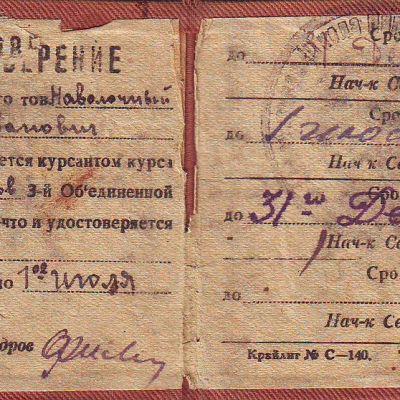 ОВЕ
ВЕРЕНИЕ
го тов. Наволочный
ванович
ется курсантом курса
ов 3-й Об'единенной
что и удостоверяется
по 1ое июля
оров
Сро
до
Нач-к С
Сро
до 1
Нач-к Се
Сро
до 31го Де
Нач-к Се
Сро
до
Нач-к Се
Крайлит № С—140. Т